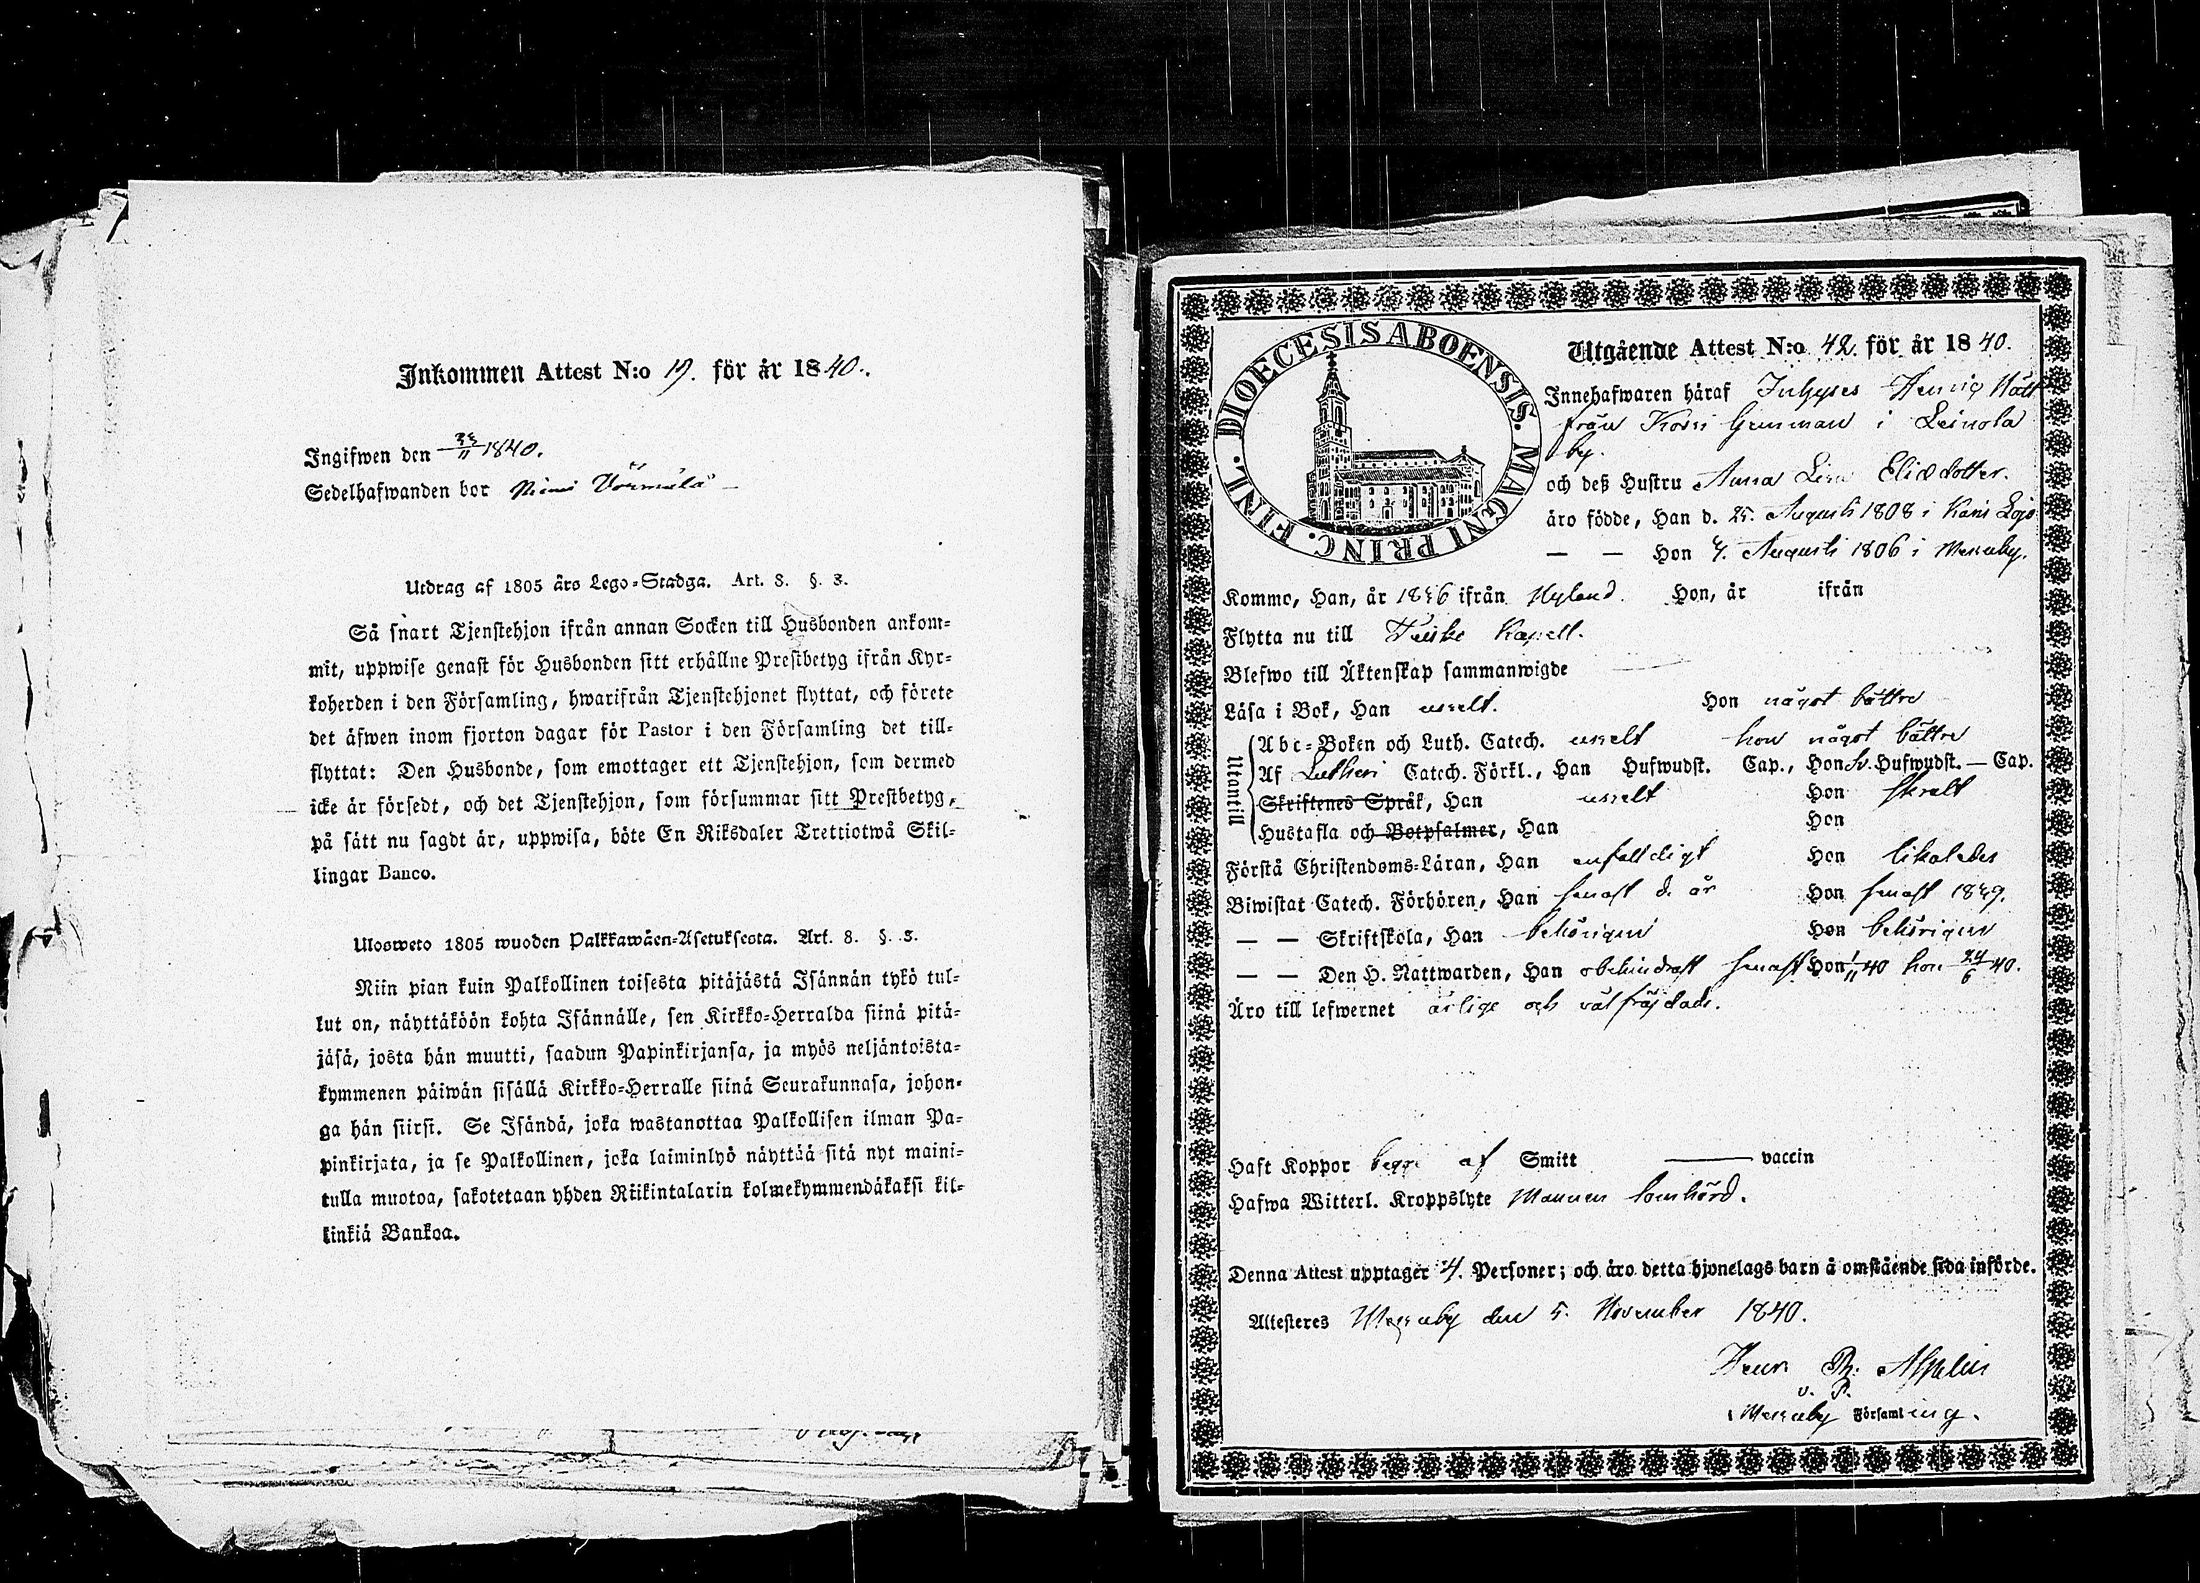 Inkommen Attest N:o 19. för år 1840.
Ingifwen den 1840.
Sedelhafwanden bor
Utdrag af 1805 års Lego-Stadga. Art. 8. §. 3.
Så snart Tjenstehjon ifrån annan Socken till Husbonden ankom-
mit, uppwise genast för Husbonden sitt erhållne Prestbetyg ifrån Kyr-
koherden i den Församling, hwarifrån Tjenstehjonet flyttat, och förete
det äfwen inom fjorton dagar för Pastor i den Församling det till-
flyttat: Den Husbonde, som emottager ett Tjenstehjon, som dermed
icke är försedt, och det Tjenstehjon, som försummar sitt Prestbetyg,
på sätt nu sagdt är, uppwisa, böte En Riksdaler Trettiotwå Skil-
lingar Banco.
Ulosweto 1805 wuoden Palkkawäen-Asetuksesta. Art. 8. §. 3.
Niin pian kuin Palkollinen toisesta pitäjästä Isännän tykö tul-
lut on, näyttäköön kohta Isännälle, sen Kirkko-Herralda siinä pitä-
jäsä, josta hän muutti, saadun Papinkirjansa, ja myös neljäntoista-
kymmenen päiwän sisällä Kirkko-Herralle siinä Seurakunnasa, johon-
ga hän siirsi. Se Isändä, joka wastanottaa Palkollisen ilman Pa-
pinkirjata, ja se Palkollinen, joka laiminlyö näyttää sitä nyt maini-
tulla muotoa, sakotetaan yhden Riikintalarin kolmekymmendäkaksi kil-
linkiä Bankoa.
DIOECESIS ABOENSIS. MAGNI PRINC. FINL.
Utgående Attest N:o 42. för år 1840.
Innehafwaren häraf Inhyses Henric
från i Leinola
by.
och deß Hustru Anna Lisa Elias dotter.
äro födde, Han d. 25. Augusti 1808 i Karis Lojo
— — Hon 4. Augusti 1806 i Messuby.
Kommo, Han, år ifrån Nyland. Hon, år ifrån
Flytta nu till Teisko Kapell.
Blefwo till Äktenskap sammanwigde —
Läsa i Bok, Han uselt. Hon något bättre
Utantill
Abc-Boken och Luth. Catech. uselt hon något bättre
Af Lutheri Catech. Förkl., Han Hufwudst. Cap., Hon Sv. Hufwudst. — Cap.
Skriftenes Språk, Han uselt Hon
Hustafla och Botpsalmer, Han Hon
Förstå Christendoms-Läran, Han enfaldigt Hon likaledes
Biwistat Catech. Förhören, Han senast d. år Hon senast 1839.
— — Skriftskola, Han behörigen Hon behörigen
— — Den H. Nattwarden, Han obehindradt senast Hon 1/11 40 hon 24/6 40.
Äro till lefwernet ärlige och välfräjdade.
Haft Koppor begge af Smitt — vaccin
Hafwa Witterl. Kroppslyte Mannen lomhörd.
Denna Attest upptager 4. Personer; och äro detta hjonelags barn å omstående sida införde.
Attesteres Messuby den 5. November 1840.
Henr.
v. P.
i Messuby Församling.